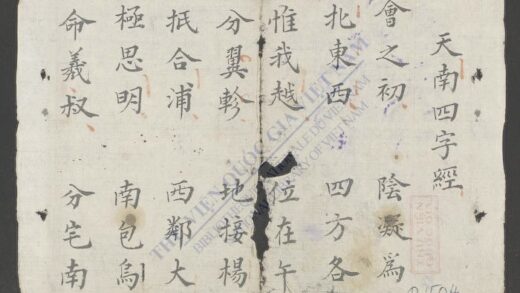 天南四字經
會之初 陰凝爲
北東西 四方各
惟我越 位在午
分翼軫 地接楊
抵合浦 西鄰大
極思明 南包烏
命羲叔 分宅南
THƯ VIỆN QUỐC GIA VIỆT NAM